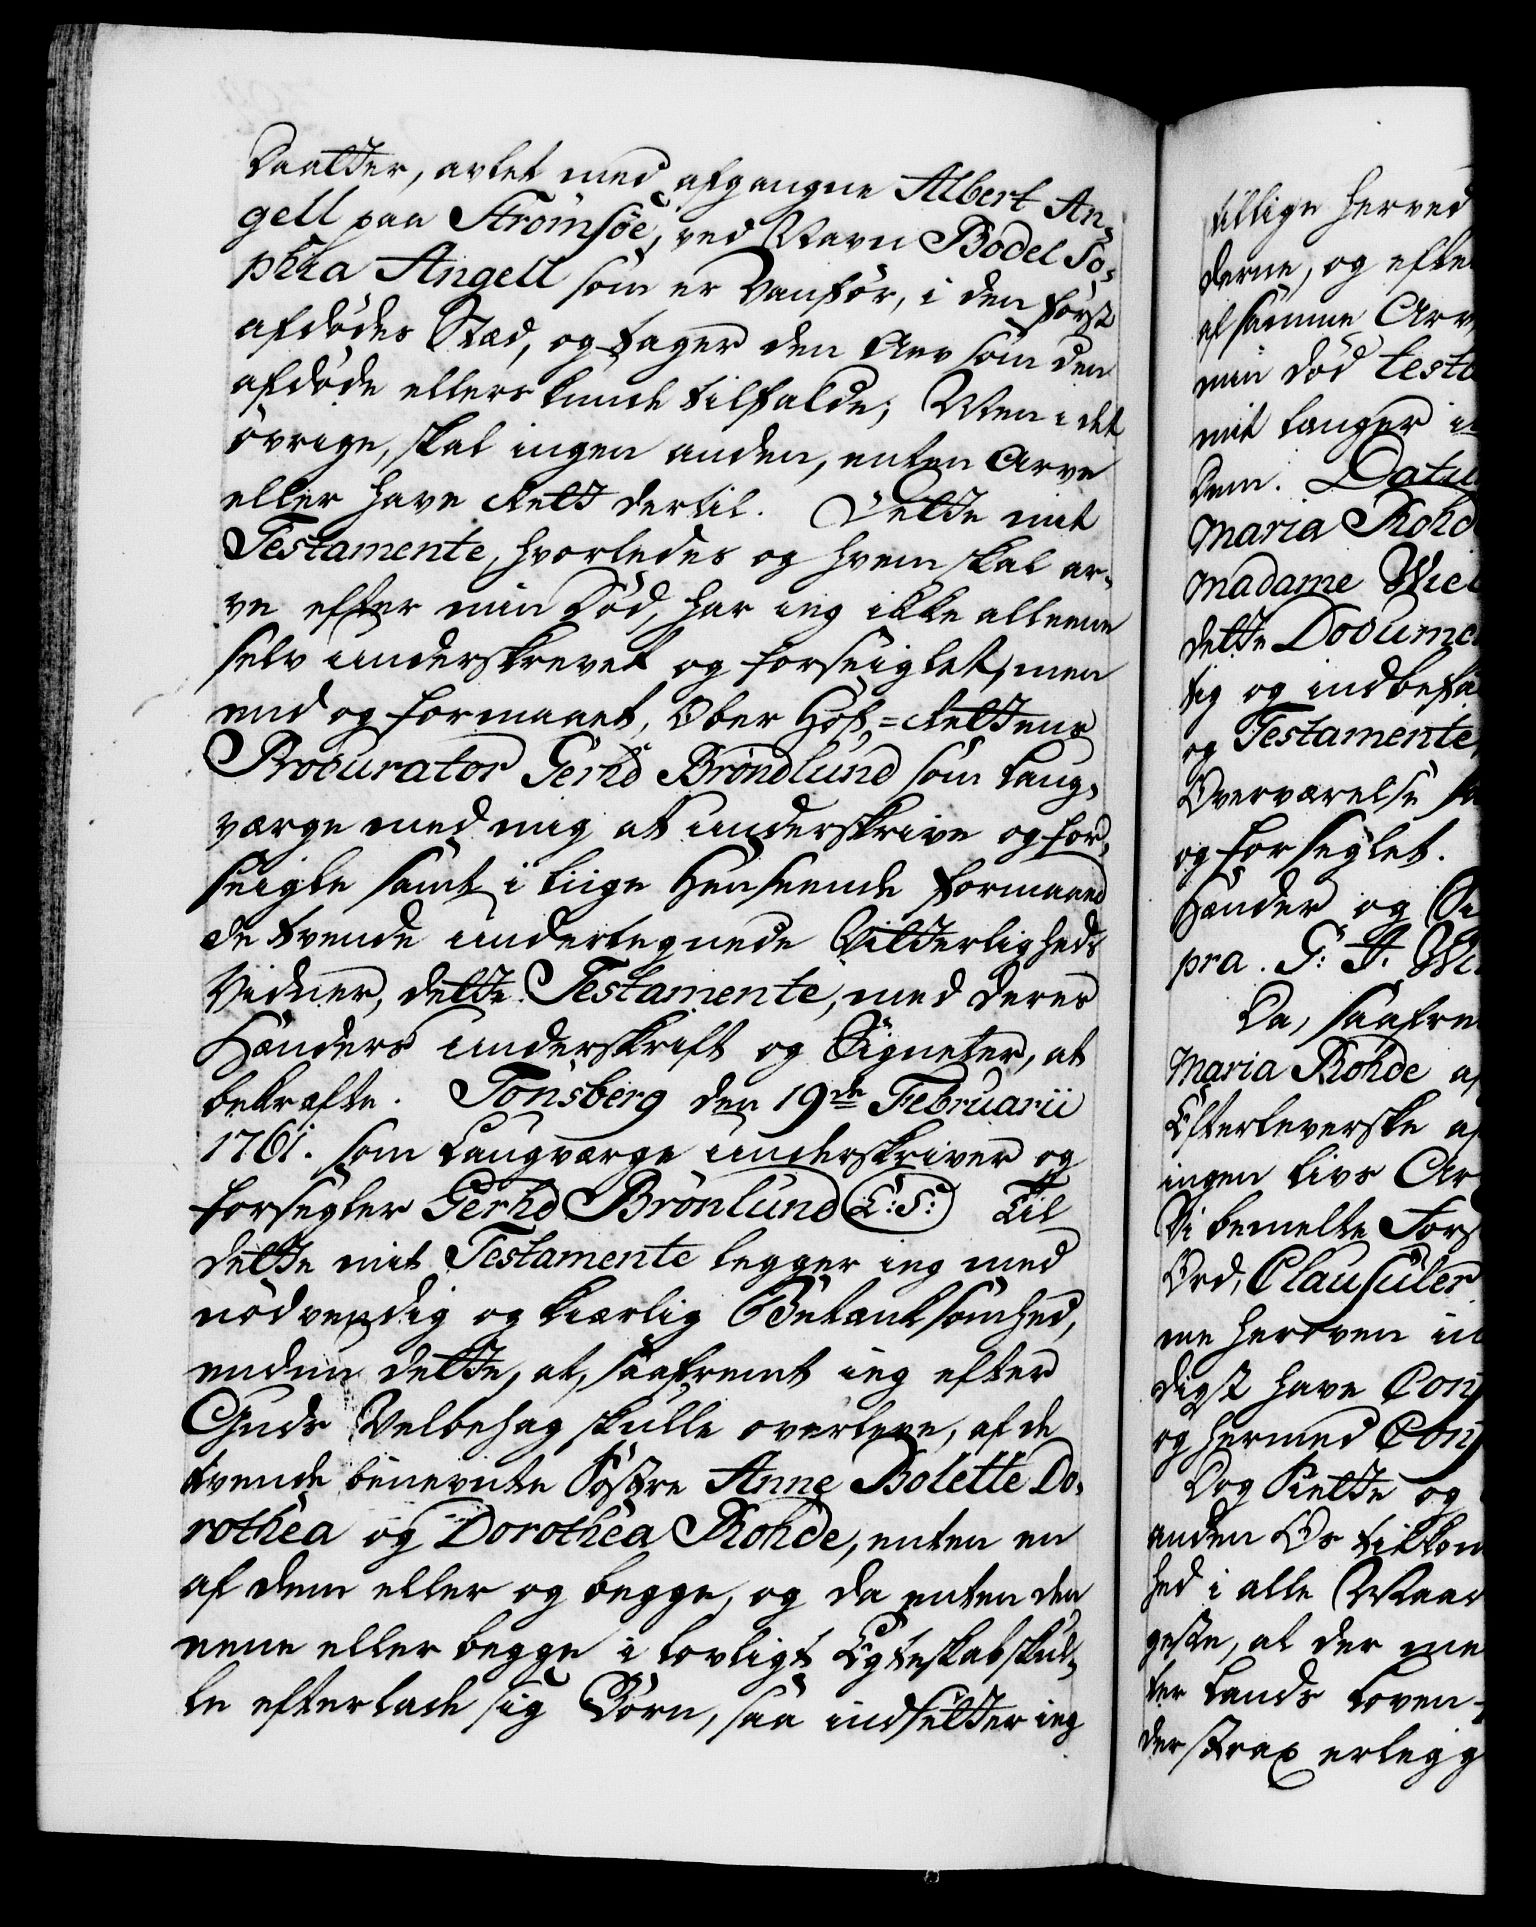 Daatter, avlet med afgangne Albert An-
gell paa Strömsöe, ved Navn Bodel So-
phia Angell som er Vanför, i den först
afdödes Stæd, og tager den Arv som den
afdöde ellers kunde tilfalde; Men i det
övrige, skal ingen anden, enten Arve
eller have Rett dertil. Dette mit
Testamente, hvorledes og hvem skal ar-
ve efter min Död, har ieg ikke alleene
selv underskrevet og forseiglet, men
end og formaaet, Ober Hof-Rettens
Procurator Gerhd Bröndlund som Laug-
værge med mig at underskrive og for-
seigle samt i liige Henseende formaaed
de tvende undertegnede Vitterligheds
Vidner, dette Testamente, med deres
Hænders underskrift og Signeter, at
bekræfte. Tönsberg den 19de Februarii
1761. som Laugværge underskriver og
forsegler Gerhd Brönlund (L:S:) Til
dette mit Testamente legger ieg med
nödvendig og kiærlig Betænksomhed,
endnu dette, at, saafremt ieg efter
Guds Velbehag skulle overleve, af de
tvende benevnte Söstre Anne Bolette Do-
rothea og Dorothea Rohde, enten en
af dem eller og begge, og da enten den
eene eller begge i lovligt Egteskab skul-
le efterlade sig Börn, saa indsetter ieg
tillige herved
derne, og efte
af samme Arv
min död testa
mit langer i
dem. Datu
Maria Rohd
Madame Wie
dette Docume
tig og indbefa
og Testamente
Overværelse
og forseglet.
Hænder og
pra. G: F. Wi
Da, saafre
Maria Rohde af
Efterleverske af
ingen livs Ar
Vi bemelte Fors
Ord, Clausuler
me heroven in
digst have Con
og hermed Con
Dog Rette og
anden Os tilkom
hed i alle Maad
geste, at der me
ter Lands Loven
der strax erlegg